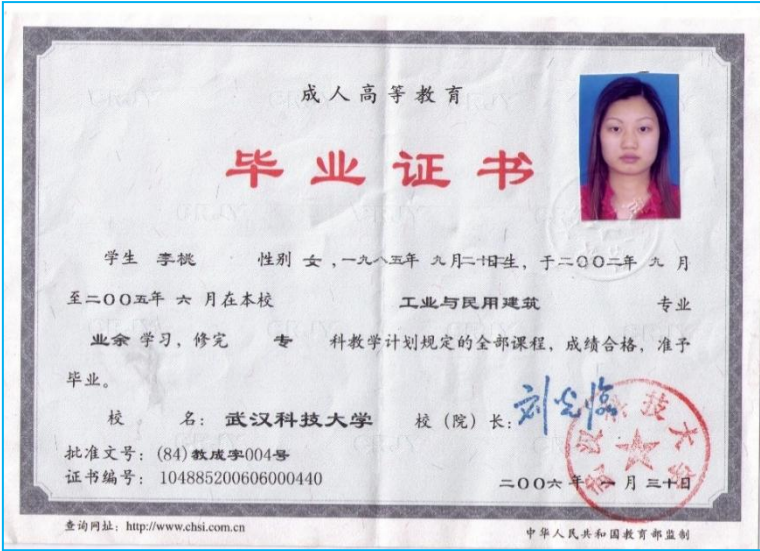 成人高等教育
毕业证书
学生 李桃 性别 女 ，一九八五年 九月二十日生，于二〇〇二年 九 月
至二〇〇五年 六 月在本校 工业与民用建筑 专业
业余 学习，修完 专 科教学计划规定的全部课程，成绩合格，准予
毕业。
校 名： 武汉科技大学 校（院）长： 刘光临
批准文号：(84)教成字004号
证书编号： 104885200606000440
武汉科技大学
二〇〇六 年 一 月 三十日
查询网址：http://www.chsi.com.cn
中华人民共和国教育部监制